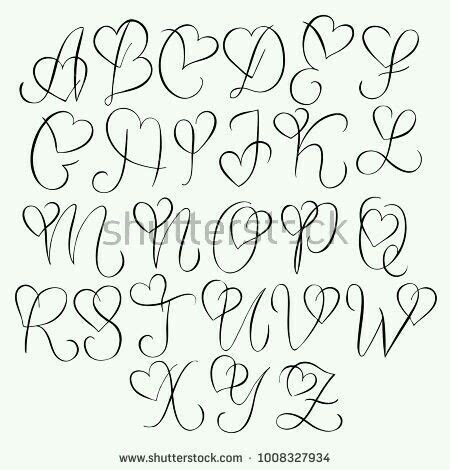 A B C D E F
G H I J K L
M N O P Q
shutterstock
R S T U V W
X Y Z
www.shutterstock.com · 1008327934